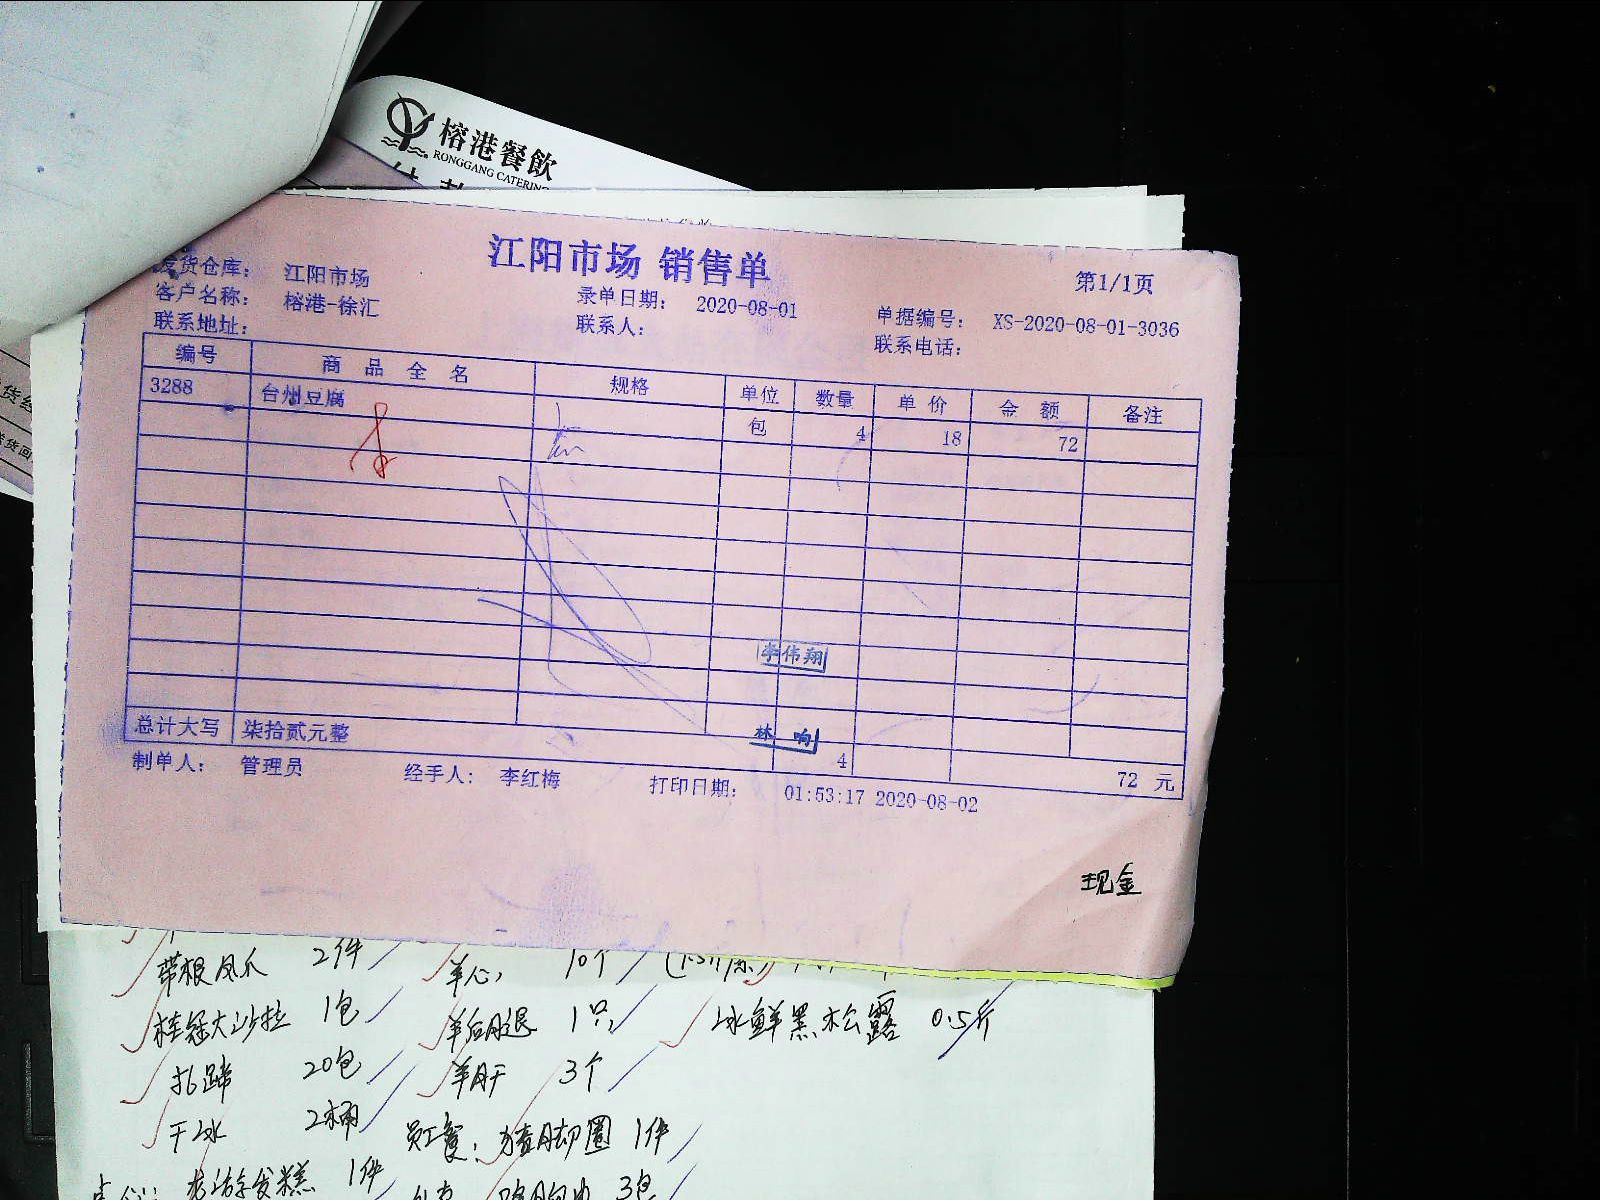 榕港餐飲
RONGGANG CATERING
江阳市场 销售单
第1/1页
发货仓库： 江阳市场
客户名称： 榕港-徐汇 录单日期： 2020-08-01 单据编号： XS-2020-08-01-3036
联系地址： 联系人： 联系电话：
编号 商品全名 规格 单位 数量 单价 金额 备注
3288 台州豆腐 包 4 18 72
李伟翔
林响
总计大写 柒拾贰元整 4 72 元
制单人： 管理员 经手人： 李红梅 打印日期： 01:53:17 2020-08-02
现金
带根凤爪 2件 羊心 10个
桂冠大沙拉 1包 羊后腿 1只 冰鲜黑松露 0.5斤
扎蹄 20包 羊肝 3个
干冰 2桶 员工餐： 1件
发糕 1件 3包